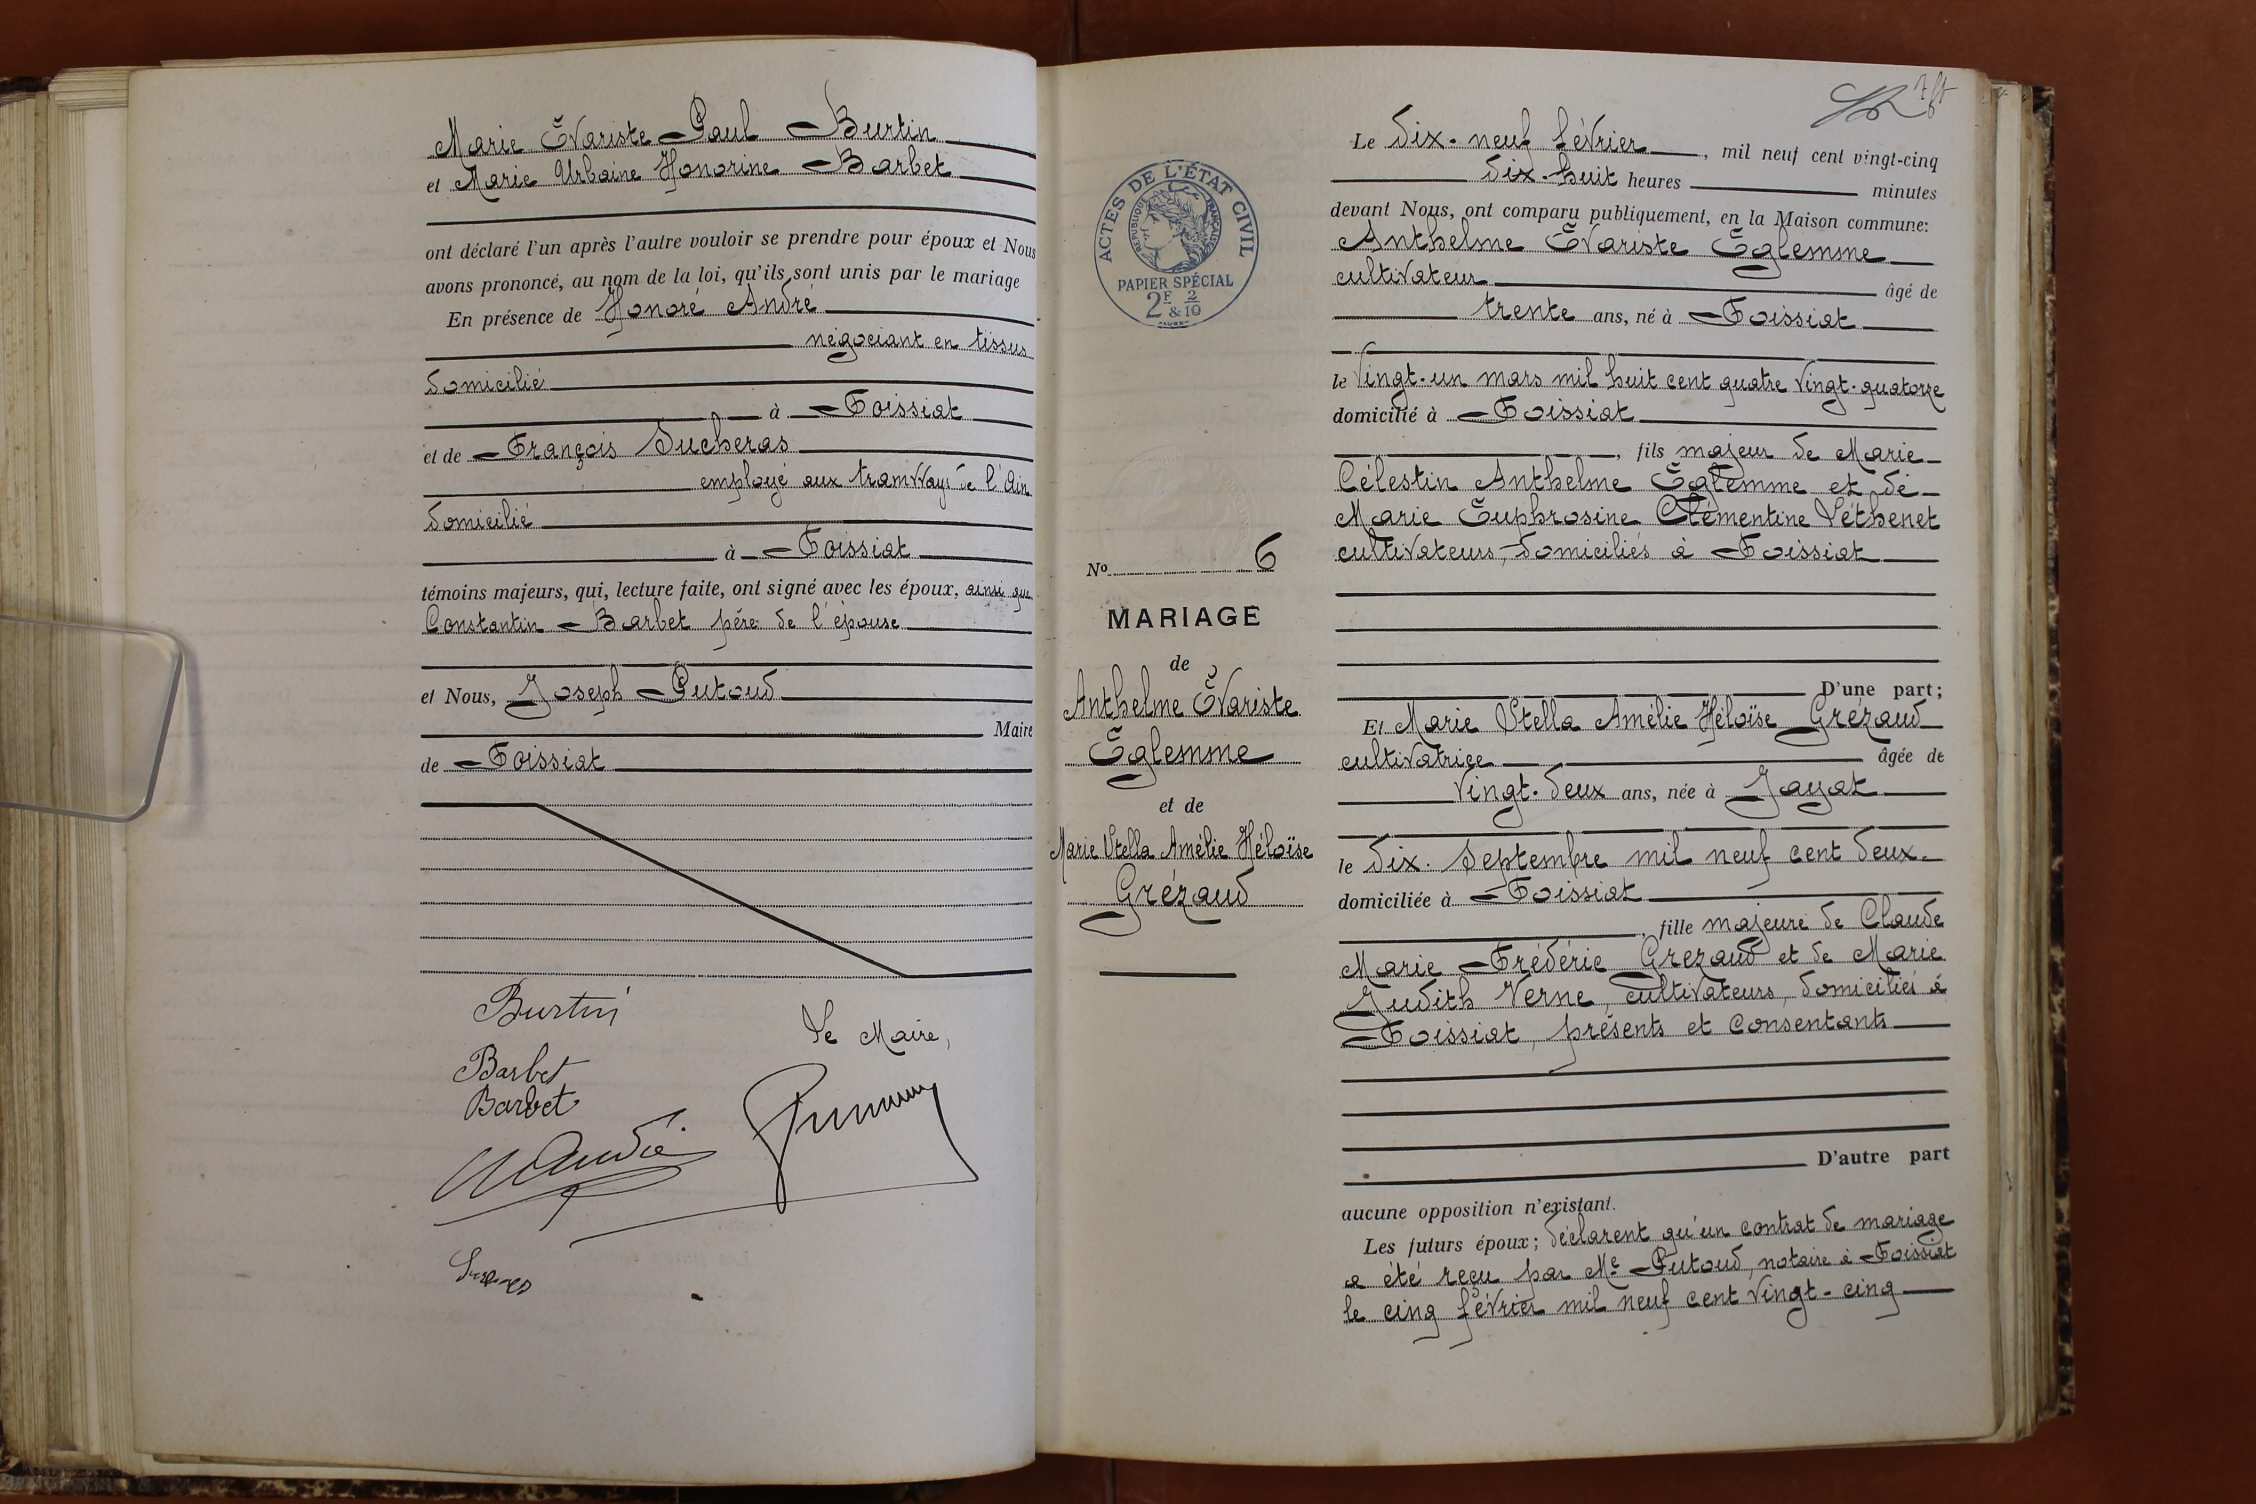 Marie Évariste Paul Burtin
et Marie Urbaine Honorine Barbet
ont déclaré l'un après l'autre vouloir se prendre pour époux et Nous
avons prononcé, au nom de la loi, qu'ils sont unis par le mariage
En présence de Honoré André
négociant en tissus
domicilié
à Foissiat
et de François Sucheras
employé aux tramways de l'Ain
domicilié
à Foissiat
témoins majeurs, qui, lecture faite, ont signé avec les époux, ainsi que
Constantin Barbet père de l'épouse
et Nous, Joseph Putoud
Maire
de Foissiat
Burtin
Le Maire,
Barbet
Barbet
André
ACTES DE L'ÉTAT CIVIL
RÉPUBLIQUE FRANÇAISE
PAPIER SPÉCIAL
2F & 2/10
No 6
MARIAGE
de
Anthelme Évariste
Églemme
et de
Marie Stella Amélie Héloïse
Grézaud
Le dix-neuf février, mil neuf cent vingt-cinq
dix-huit heures minutes
devant Nous, ont comparu publiquement, en la Maison commune:
Anthelme Évariste Églemme
cultivateur âgé de
trente ans, né à Foissiat
le vingt-un mars mil huit cent quatre vingt-quatorze
domicilié à Foissiat
, fils majeur de Marie
Célestin Anthelme Églemme et de
Marie Euphrosine Clémentine Péthenet
cultivateurs, domiciliés à Foissiat
D'une part;
Et Marie Stella Amélie Héloïse Grézaud
cultivatrice âgée de
vingt-deux ans, née à Jayat
le dix septembre mil neuf cent deux
domiciliée à Foissiat
, fille majeure de Claude
Marie Frédéric Grezaud et de Marie
Judith Verne, cultivateurs, domiciliés à
Foissiat, présents et consentants
D'autre part
aucune opposition n'existant.
Les futurs époux; déclarent qu'un contrat de mariage
a été reçu par Me Putoud, notaire à Foissiat
le cinq février mil neuf cent vingt-cinq